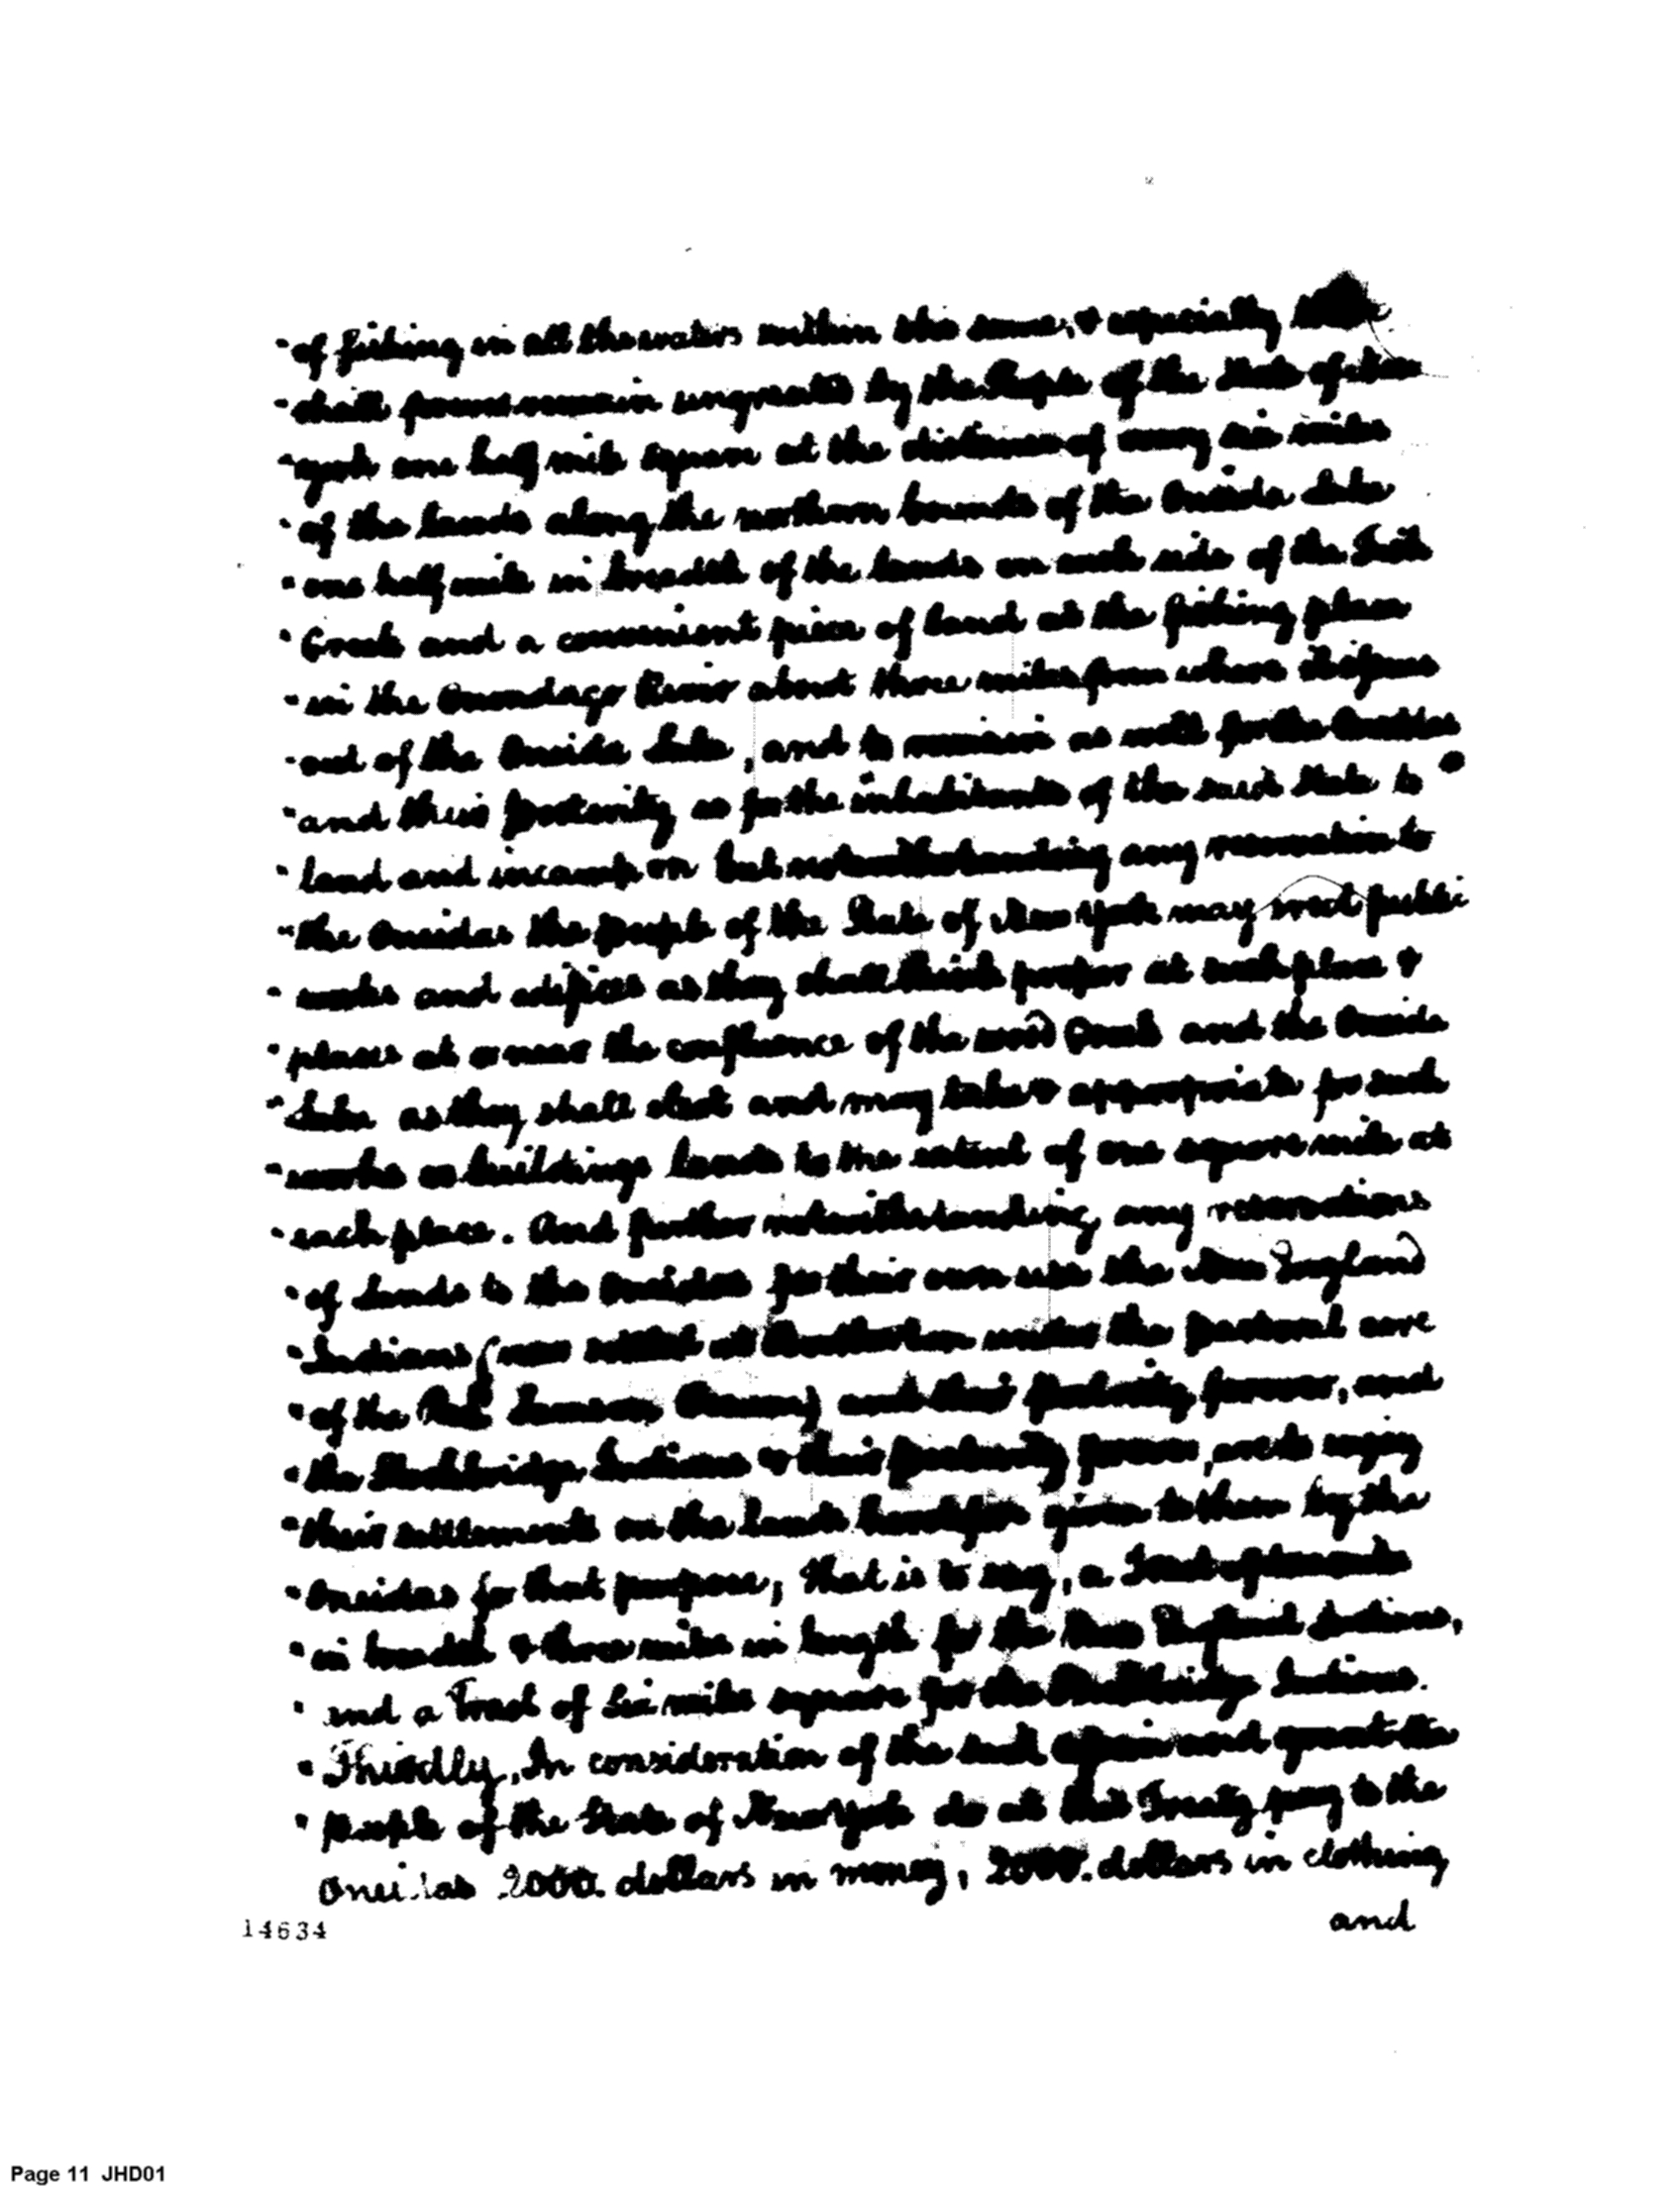 "of fishing in all the waters within the same, & especially there
"shall forever remain ungranted by the People of the State of New
"york one half mile square at the distance of every six miles
"of the Lands along the northern bounds of the Oneida Lake
"one half mile in breadth of the lands on each side of the Fish
"Creek and a convenient piece of Land at the fishing place
"in the Onondaga River about three miles from where it issues
"out of the Oneida Lake, and to remain as well for the Oneidas
"and their posterity as for the inhabitants of the said State to
"land and incamp on but notwithstanding any reservation to
"the Oneidas the people of the State of New York may erect public
"works and edifices as they shall think proper at such place &
"places at or near the confluence of the wood Creek and the Oneida
"Lake as they shall elect and may take & appropriate for such
"works or buildings lands to the extent of one square mile at
"each place. And further notwithstanding any reservations
"of Lands to the Oneidas for their own use the New England
"Indians (now settled at Brothertown under the pastoral care
"of the Rev.d Samson Occum) and their posterity forever, and
"the Stockbridge Indians & their posterity forever, are to enjoy
"their settlements on the Lands heretofore given to them by the
"Oneidas for that purpose, that is to say, a Tract of two miles
"in breadth & three miles in length for the New England Indians,
"and a Tract of Six miles square for the Stockbridge Indians.
"Thirdly, In consideration of the said cession and grant the
"People of the State of New York do at this Treaty pay to the
Oneidas 2000. dollars in money, 2000. dollars in clothing
and
14634
Page 11 JHD01